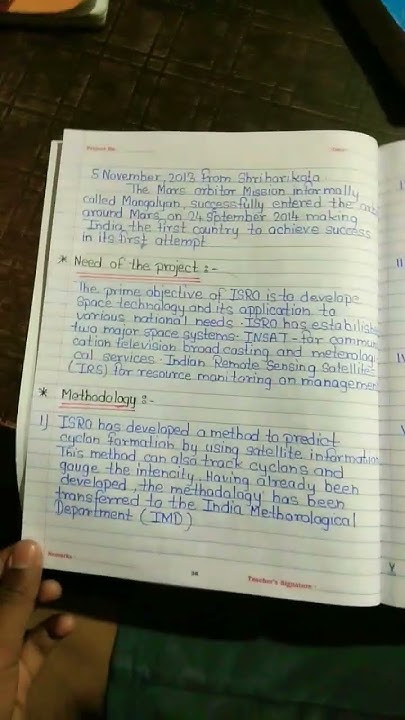 Project No.
5 November, 2013 from Shriharikota.
The Mars orbitor Mission informally
called Mangalyan, successfully entered the
around Mars on 24 Sptember 2014 making
India the first country to achieve success
in its first attempt
* Need of the project :-
The prime objective of ISRO is to develope
space technology and its application to
various national needs. ISRO has estabilish
two major space systems. INSAT - for commu
cation television broad casting and meterologi
cal services. Indian Remote Sensing Satellites
(IRS) for resource manitoring on managemen
* Mothodalogy :-
1) ISRO has developed a method to predict
cyclon formation by using satellite information
This method can also track cyclons and
gauge the intencity, Having already been
developed, the methodalogy has been
transferred to the India Methorological
Department (IMD)
Remarks -
38
Teacher's Signature -
II
IV
V